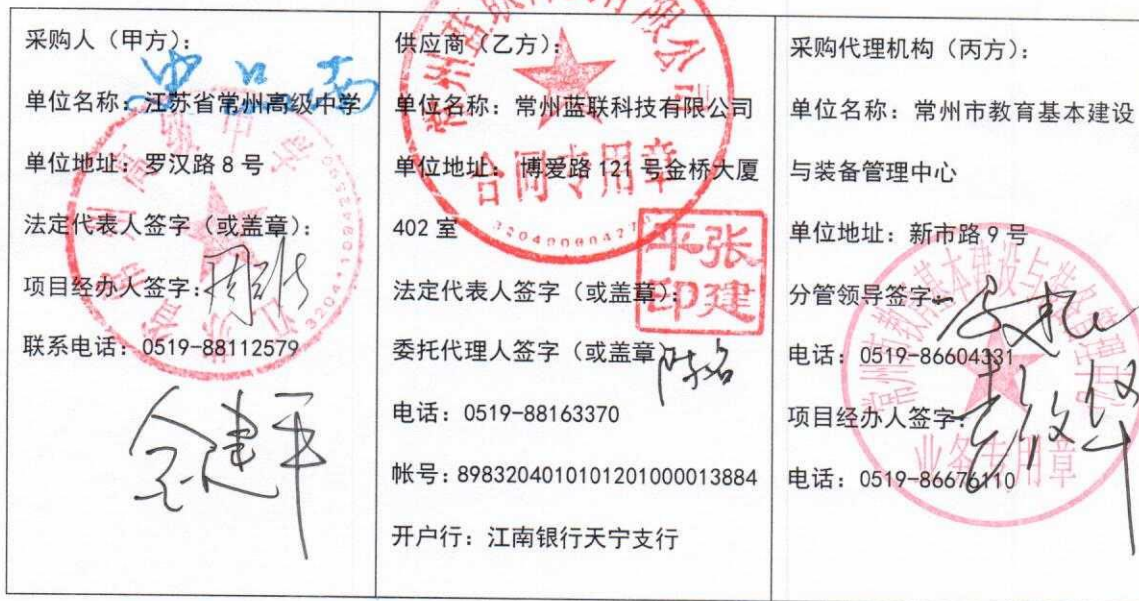 采购人（甲方）：
单位名称：江苏省常州高级中学
单位地址：罗汉路8号
法定代表人签字（或盖章）：
项目经办人签字：
联系电话：0519-88112579
金建平
供应商（乙方）：
单位名称：常州蓝联科技有限公司
单位地址：博爱路121号金桥大厦
402室
法定代表人签字（或盖章）：
委托代理人签字（或盖章）
电话：0519-88163370
帐号：8983204010101201000013884
开户行：江南银行天宁支行
常州蓝联科技有限公司
合同专用章
张建平印
采购代理机构（丙方）：
单位名称：常州市教育基本建设
与装备管理中心
单位地址：新市路9号
分管领导签字：
电话：0519-86604331
项目经办人签字：
电话：0519-86676110
常州市教育基本建设与装备管理中心
业务专用章